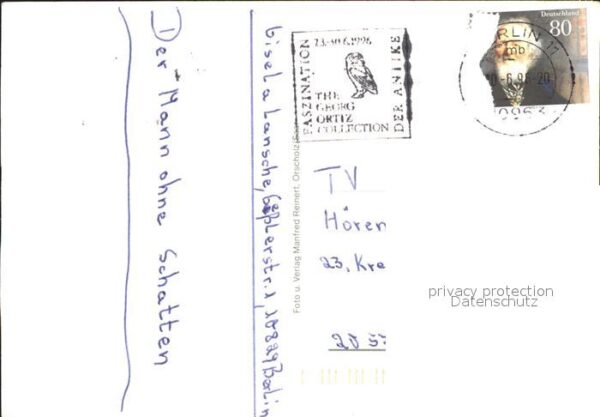 Der Mann ohne Schatten
Gisela Lansche, Geßlerstr. 1, 10829 Berlin
Foto u. Verlag Manfred Reinert, Orscholz
FASZINATION
DER ANTIKE
THE
GEORG
ORTIZ
COLLECTION
Deutschland
80
BERLIN 11
mb
TV
Hören
23. Kre
privacy protection
Datenschutz